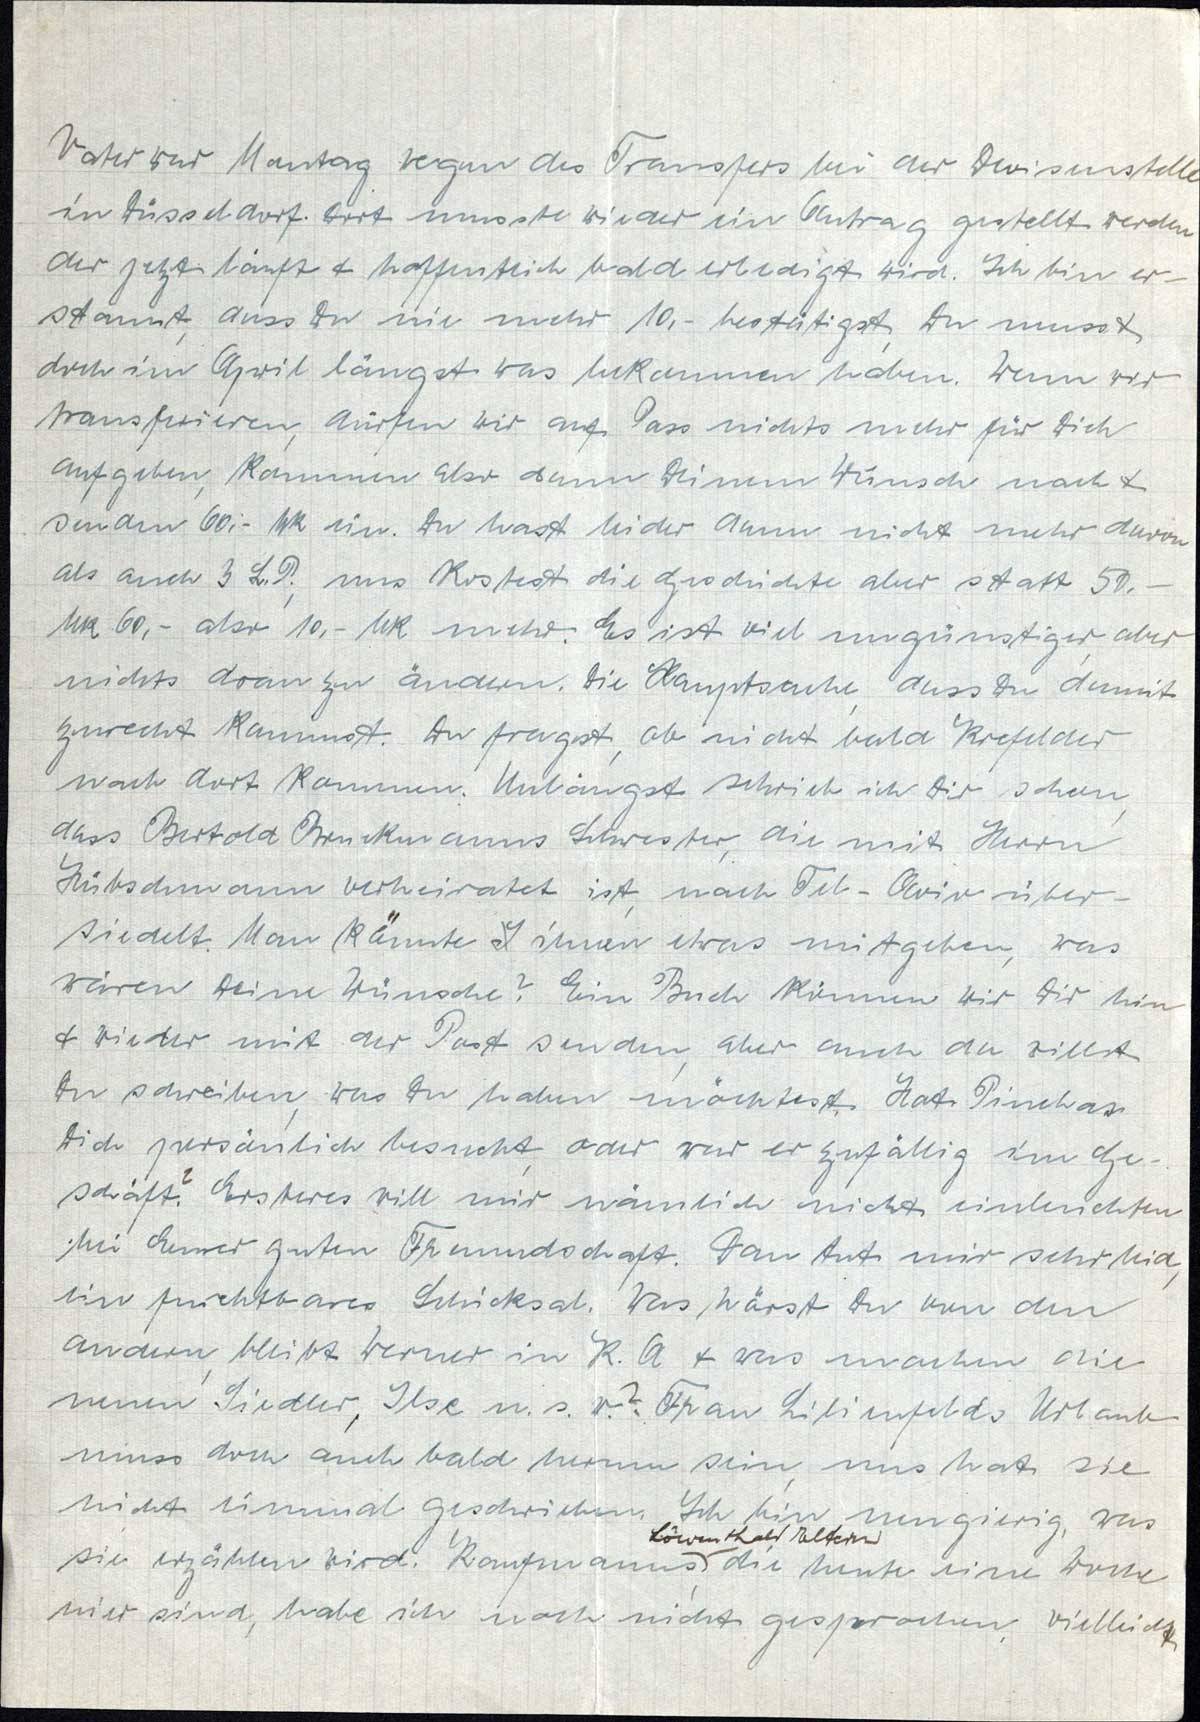 Vater war Montag wegen des Transfers bei der Devisenstelle
in Düsseldorf. Dort musste wieder ein Antrag gestellt werden
der jetzt läuft & hoffentlich bald erledigt wird. Ich bin er-
staunt, dass Du nie mehr 10,- bestätigst, Du musst
doch im April längst was bekommen haben. Wenn wir
transferieren, dürfen wir auf Pass nichts mehr für Dich
aufgeben, kommen also dann Deinem Wunsch nach &
senden 60,- Mk ein. Du hast leider dann nicht mehr davon
als auch 3 L.P., uns kostest die Geschichte aber statt 50.-
Mk 60,- also 10,- Mk mehr. Es ist viel ungünstiger, aber
nichts dran zu ändern. Die Hauptsache, dass Du damit
zurecht kommst. Du fragst, ob nicht bald Krefelder
nach dort kommen. Unlängst schrieb ich Dir schon,
dass Bertold Bruckmanns Schwester, die mit Herrn
Hübschmann verheiratet ist, nach Tel-Aviv über-
siedelt. Man könnte ihnen etwas mitgeben, was
wären Deine Wünsche? Ein Buch können wir Dir hin
& wieder mit der Post senden, aber auch da willst
Du schreiben, was Du haben möchtest. Hat Pinchas
Dich persönlich besucht, oder war er zufällig im Ge-
schäft? Ersteres will mir nämlich nicht einleuchten
bei Eurer guten Freundschaft. Dan tut mir sehr leid,
ein furchtbares Schicksal. Was hörst Du von den
andern, bleibt Werner in K. A & was machen die
neuen Siedler, Ilse u. s. w.? Frau Lilienfelds Urlaub
muss doch auch bald herum sein, uns hat sie
nicht einmal geschrieben. Ich bin neugierig, was
Löwenthals Eltern
sie erzählen wird. Kaufmanns, die heute eine Woche
hier sind, habe ich noch nicht gesprochen, vielleicht